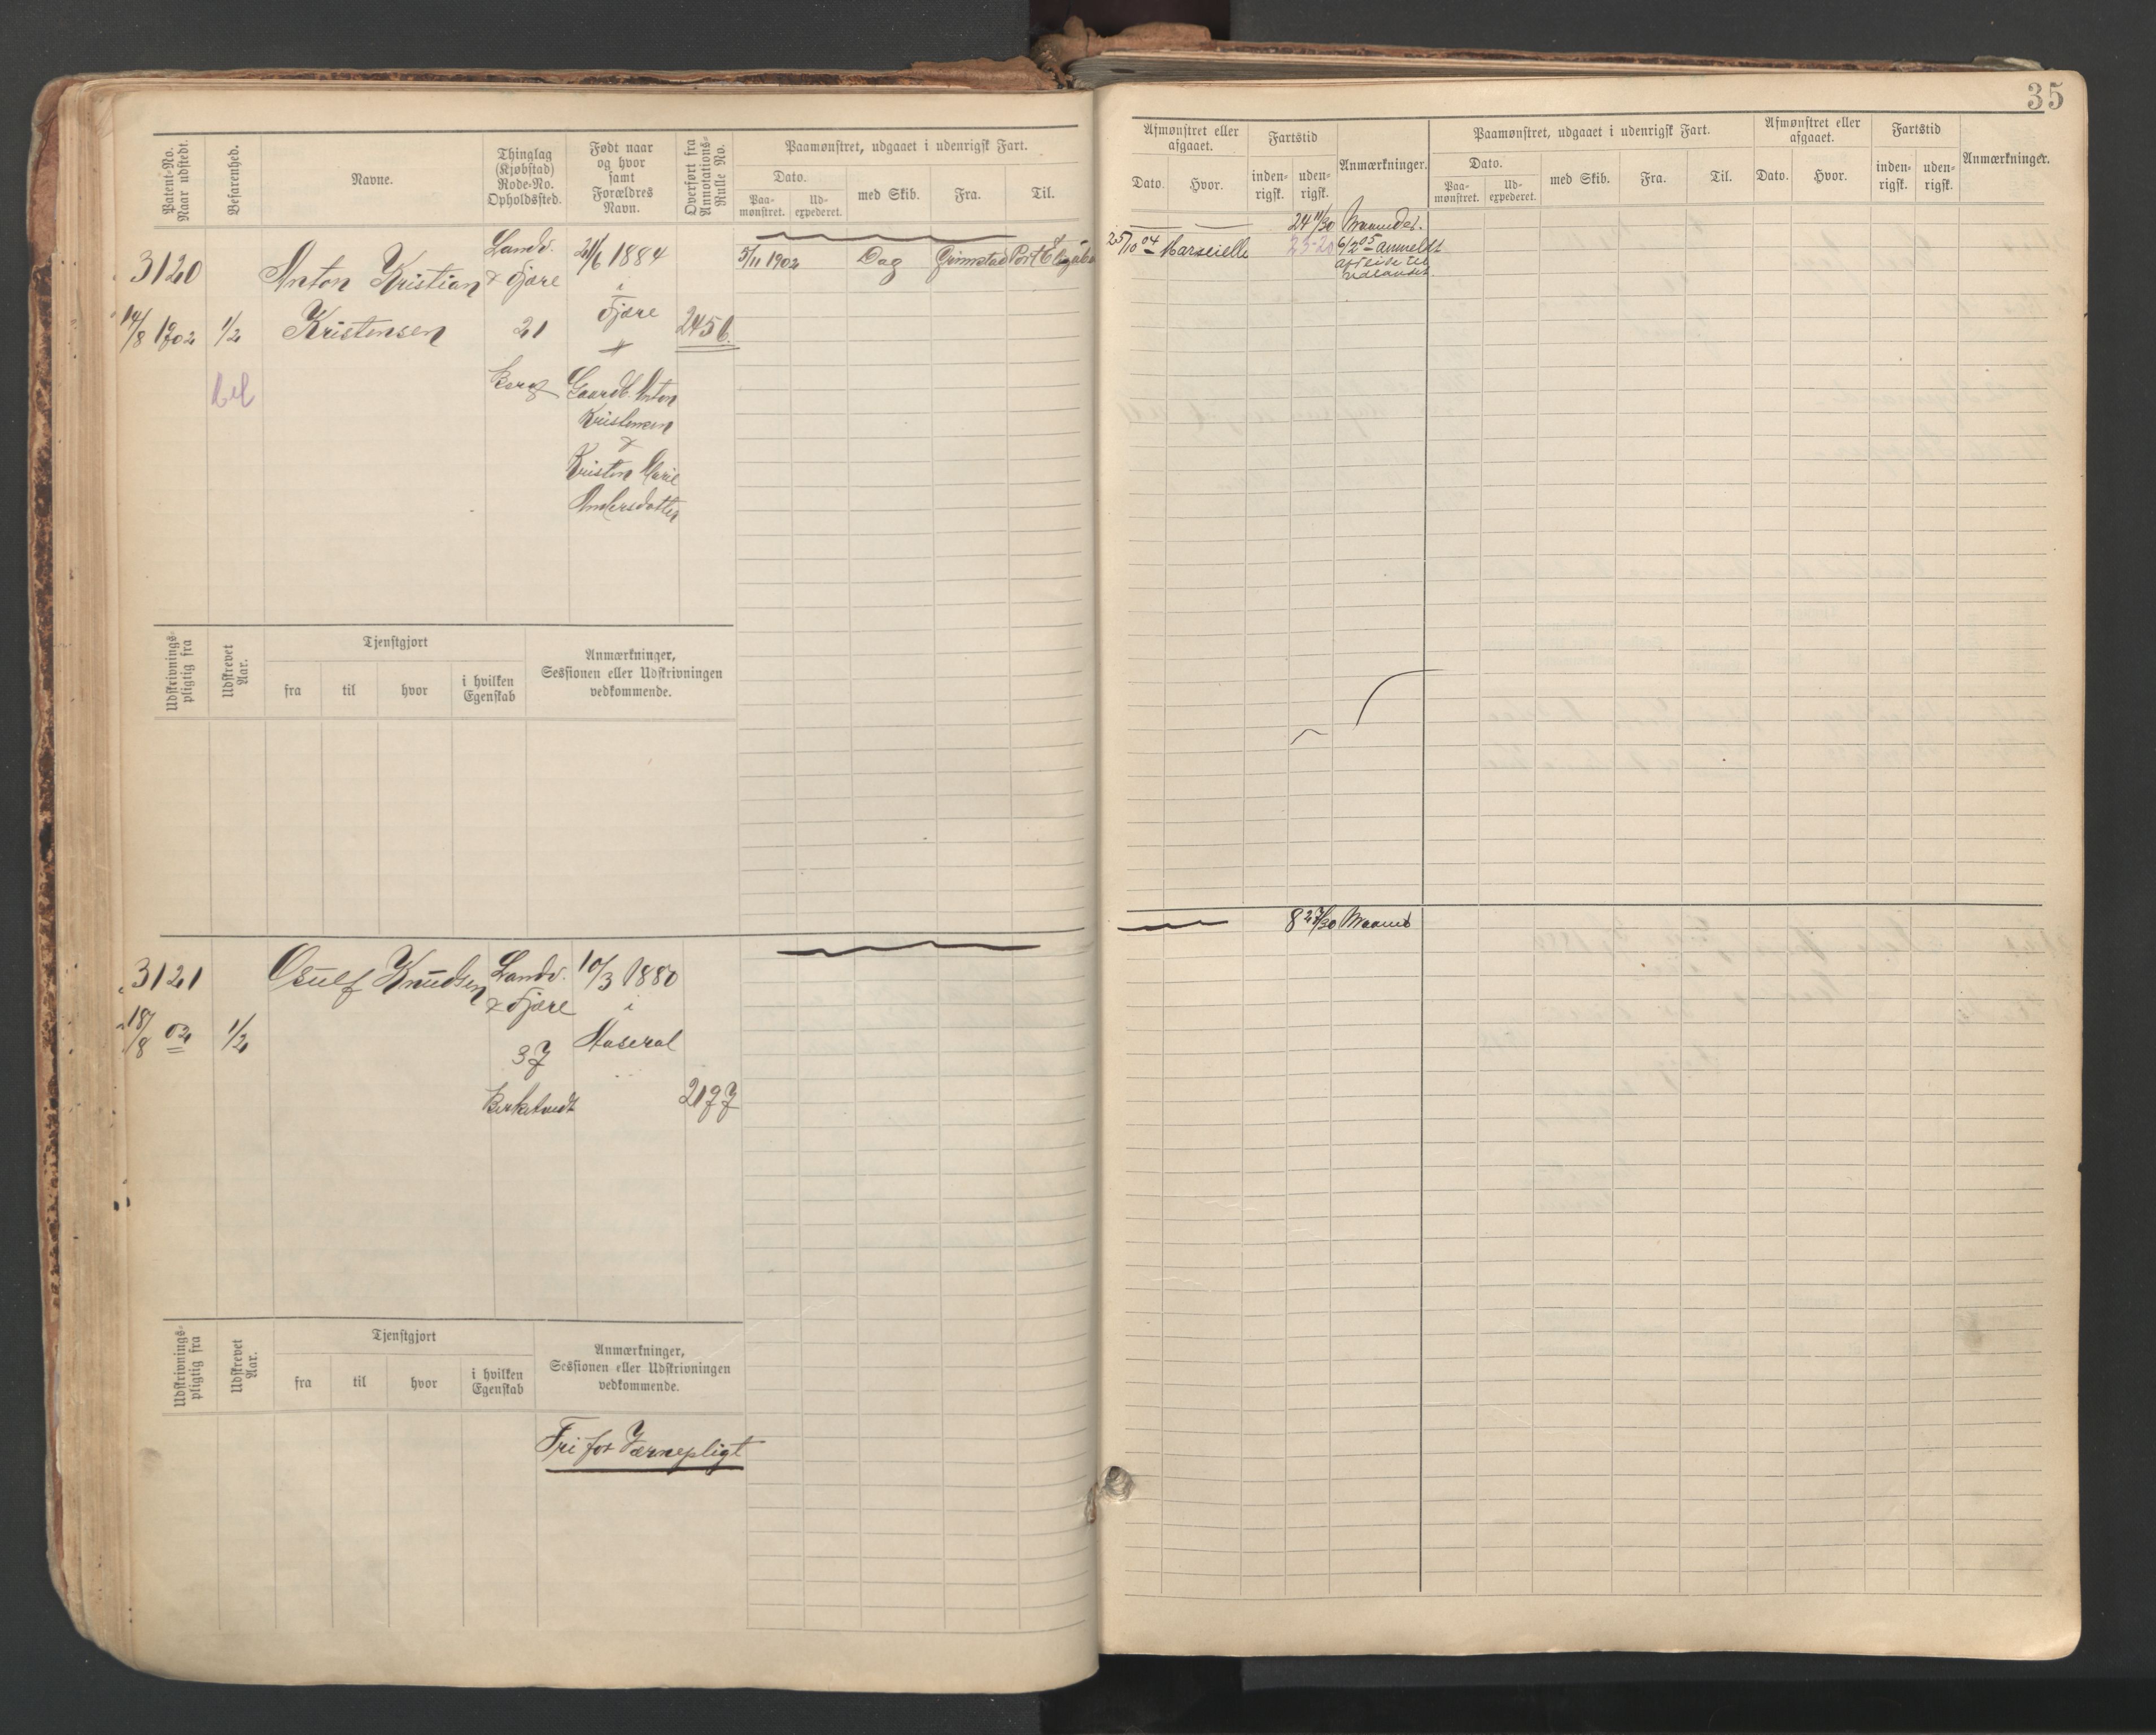 35
Patent-No. Naar udstedt.
Befarenhed.
Navne.
Thinglag (Kjøbstad) Rode-No. Opholdssted.
Født naar og hvor samt Forældres Navn.
Overført fra Annotations-Rulle No.
Paamønstret, udgaaet i udenrigsk Fart.
Dato.
Paa-mønstret.
Ud-expederet.
med Skib.
Fra.
Til.
Afmønstret eller afgaaet.
Dato.
Hvor.
Fartstid
inden-rigsk.
uden-rigsk.
Anmærkninger.
Paamønstret, udgaaet i udenrigsk Fart.
Dato.
Paa-mønstret.
Ud-expederet.
med Skib.
Fra.
Til.
Afmønstret eller afgaaet.
Dato.
Hvor.
Fartstid
inden-rigsk.
uden-rigsk.
Anmærkninger.
3120
14/8 1902
1/2
Anton Kristian
Kristensen
Landv.
& Fjære
21
Berg
1884
i
Fjære
Gaardb. Anton
Kristensen
&
Kristen Marie
Andersdatter
2456.
5/11 1902
Dag
Grimstad
Port Elizabeth
25/10 04
Marseielle
24 11/30 Maaneder.
23-20
6/2 05 anmeldt
afreise til
udlandet
Udskrivnings-pligtig fra
Udskrevet Aar.
Tjenstgjort
fra
til
hvor
i hvilken Egenskab
Anmærkninger,
Sessionen eller Udskrivningen
vedkommende.
3121
18/8 02
1/2
Osulf Knudsen
Landv.
& Fjære
37
10/3 1880
i
Aaseral
2177
8 27/30 Maaned
Udskrivnings-pligtig fra
Udskrevet Aar.
Tjenstgjort
fra
til
hvor
i hvilken Egenskab
Anmærkninger,
Sessionen eller Udskrivningen
vedkommende.
Fri for Værnepligt